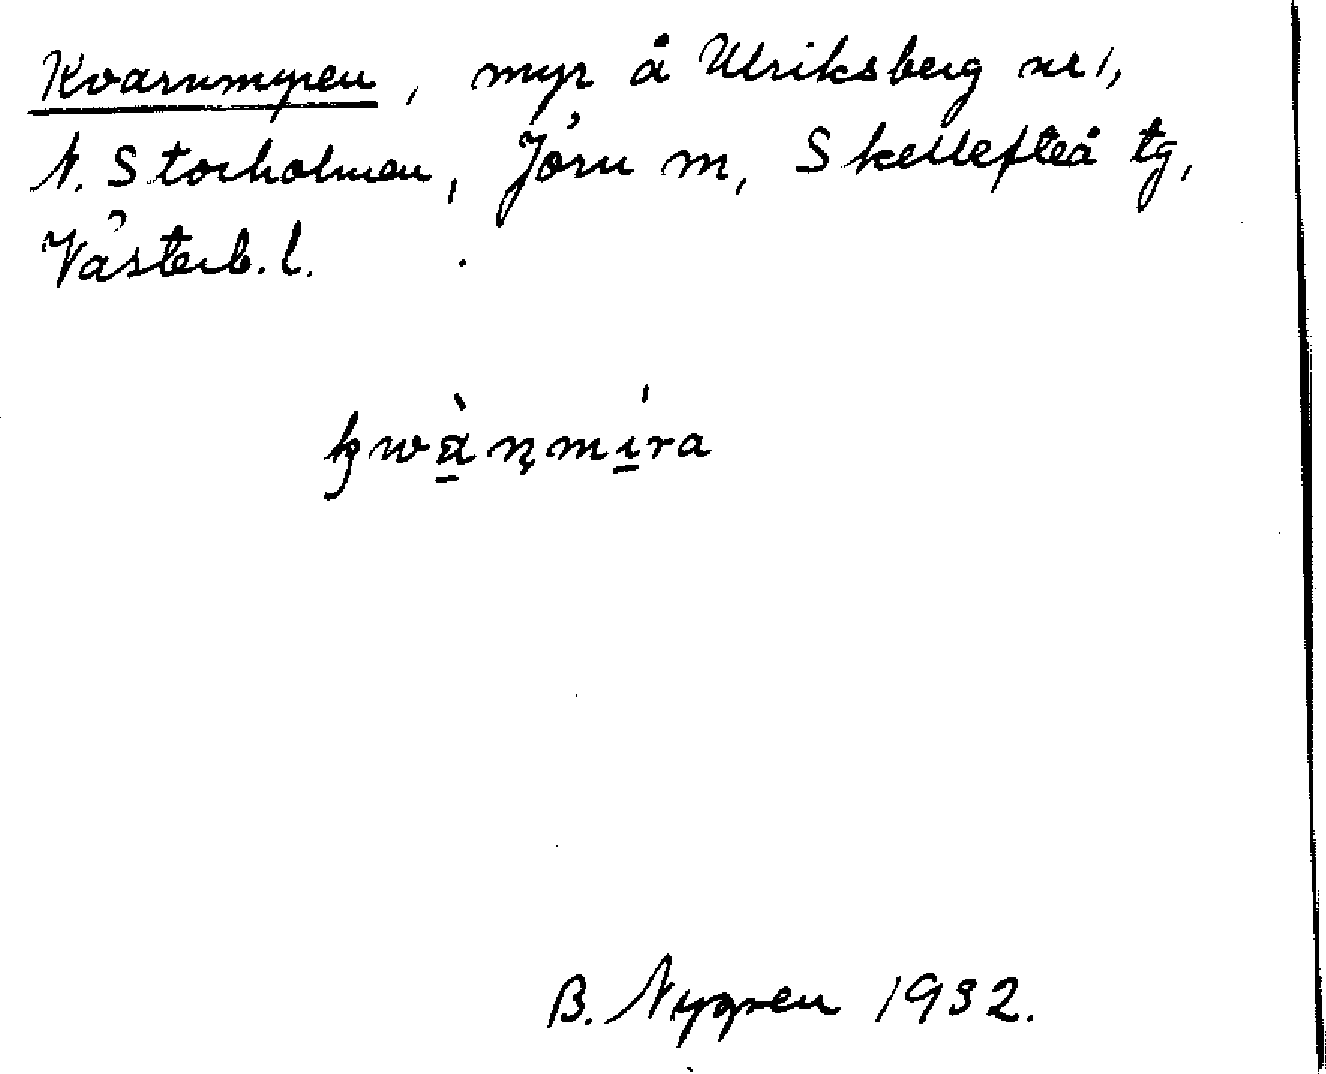 Kvarnmyren, myr å Ulriksberg nr 1,
N. Storholmen, Jörn m, Skellefteå tg,
Västerb. l.
kwà̱ṇmí̱ra
B. Nygren 1932.